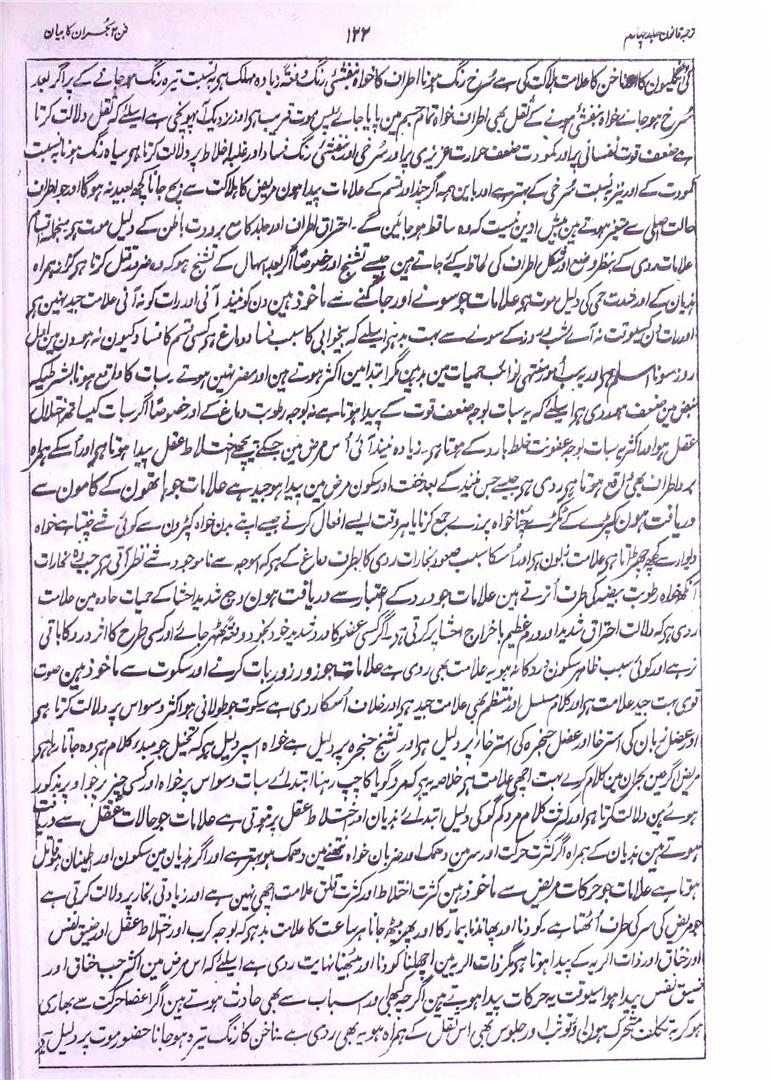 ترجمہ قانون جلد چہارم
۱۲۲
فن ۲ بحران کا بیان
کی انگلیوں کا اور ناخن کا علامت ہلاکت کی ہے سرخ رنگ ہونا اطراف کا خواہ بنفشئی رنگ دفعۃً زیادہ مہلک ہی بہ نسبت تیرہ رنگ ہوجانے کے پر اگر بعد
سرخ ہوجانے خواہ بنفشئی ہونے کے ثقل بھی اطراف خواہ تمام جسم مین پایا جائے پس موت قریب ہی اور نزدیک آ پہونچی ہے اسلیے کہ ثقل دلالت کرتا
ہے ضعف قوت نفسانی پر اور کمودت ضعف حرارت عزیزی پر اور سرخی اور بنفشئی رنگ فساد اور غلبہ اخلاط پر دلالت کرتا ہی سیاہ رنگ ہونا بہ نسبت
کمودت کے اور نیز بہ نسبت سرخی کے بہتر ہے اور باین ہمہ اگر جید اور قسم کے علامات پیدا ہون مریض کا ہلاکت سے بچ جانا کچھ بعید نہ ہوگا اور جو اطراف
حالت اصلی سے متغیر ہوتے ہین بیشتر اوین نسبت کہ وہ ساقط ہوجائین گے۔ احتراق اطراف اور جلد کا مع برودت باطن کے دلیل موت ہی منجملہ اقسام
علامات ردی کے بنظر وضع اور شکل اطراف کی لحاظ کئے جاتے ہین جیسے تشنج اور خصوصاً اگر بعد اسہال کے تشنج ہو کہ وہ ضرور قتل کرتا ہی کزاز ہمراہ
ہذیان کے اور شدت حمی کی دلیل موت ہو علامات جو سونے اور جاگنے سے ماخوذ ہین دن کو نیند آنی اور رات کو نہ آنی علامت جید نہین ہی
اور رات دن کسیوقت نہ آے شب و روز کے سونے سے بہت بد ہی اسلیے کہ بیخوابی کا سبب فساد دماغ ہی کسی قسم کا فساد کیون نہ ہو دن مین اول
روز سونا اسلم ہی
نبض مین ضعف ہو ردی ہی اسلیے کہ یہ سبات بوجہ ضعف قوت کے پیدا ہوتا ہے نہ بوجہ رطوبت دماغ کے اور خصوصاً اگر سبات کیساتھ اختلال
عقل ہو اور اکثر یہ سبات بوجہ عفونت خلط بارد کے ہوتا ہی۔ زیادہ نیند آنی اُس مرض مین جسکے پیچھے اختلاط عقل پیدا ہوتا ہی اور اُسکے ہمراہ
برد اطراف بھی واقع ہوتا ہی ردی ہی جیسے جس نیند کے بعد خفت اور سکون مرض مین پیدا ہو جید ہے علامات جو ہاتھون کے کامون سے
دریافت ہون کپڑے کے ٹکڑے چننا خواہ پرزے جمع کرنا یا ہر وقت ایسے افعال کرنے جیسے اپنے بدن خواہ کپڑون سے کوئی شے چنتا ہے خواہ
دیوار سے کچھ چھڑاتا ہی علامت زبون ہی اور اُسکا سبب صعود بخارات ردی کا بطرف دماغ کے ہی کہ اسوجہ سے ناموجود شے نظر آتی ہی جب وہ بخارات
آنکھ خواہ رطوبت بیضیہ کی طرف اُترتے ہین علامات جو درد کے اعتبار سے دریافت ہون وجع شدید احشا کے حمیات حادہ مین علامت
ردی ہی کہ دلالت احتراق شدید اور ورم عظیم یا خراج احشا پر کرتی ہے۔ اگر کسی عضو کا درد شدید خود بخود دفعۃً ٹھہر جائے اور کسی طرح کا اثر درد کا باقی
نرہے اور کوئی سبب ظاہر سکون درد کا نہو یہ علامت بھی ردی ہے علامات جو زور زور بات کرنے اور سکوت سے ماخوذ ہین صوت
قوی بہت جید علامت ہی اور کلام مسلسل اور منتظم بھی علامت جید ہی اور خلاف اُسکا ردی ہے سکوت جو طولانی ہو اکثر وسواس پر دلالت کرتا ہی
اور عضل زبان کی استرخا اور عضل حنجرہ کی استرخا پر دلیل ہی اور تشنج حنجرہ پر دلیل ہے خواہ اسپر دلیل ہی کہ تخیل جو مبدء کلام ہی وہ جاتا رہا ہی
مریض اگر عین بحران مین کلام کرے بہت اچھی علامت ہی خلاصہ یہ کہ مرد گویا کا چپ رہنا ابتدائے سبات وسواس پر خواہ اور کسی چیز پر جو اوپر مذکور
ہوئے ہین دلالت کرتا ہی اور کثرت کلام مرد کم گو کی دلیل ابتدائے ہذیان اور اختلاط عقل پر ہوتی ہے علامات جو حالات عقل سے دریافت
ہوتے ہین ہذیان کے ہمراہ اگر کثرت حرکت اور سر مین دھمک اور ضربان خواہ نتھنے مین دھمک ہو بہتر ہے اور اگر ہذیان مین سکون اور اطمینان ہو قاتل
ہوتا ہے علامات جو حرکات مریض سے ماخوذ ہین کثرت اختلاط اور کثرت قلق علامت اچھی نہین ہے اور زیادتی بخار پر دلالت کرتی ہے
جو مریض کی سر کی طرف اُٹھتا ہے۔ کودنا اور پھاندنا بیمار کا اور پھر بیٹھ جانا ہر ساعت کا علامت بد ہی کہ بوجہ کرب اور اختلاط عقل اور ضیق نفس
اور خناق اور ذات الریہ کے پیدا ہوتا ہی مگر ذات الریہ مین اچھلنا کودنا اور بیٹھنا نہایت ردی ہے اسلیے کہ اس مرض مین اکثر جب خناق اور
ضیق نفس پیدا ہو اسیوقت یہ حرکات پیدا ہوتے ہین اگرچہ کبھی اور اسباب سے بھی حادث ہوتے ہین اگر اعضا حرکت سے بھاری
ہوکر بہ تکلف متحرک ہون اور جلوس بھی اس ثقل کے ہمراہ ہو یہ بھی ردی ہے۔ ناخن کا رنگ تیرہ ہوجانا حضور موت پر دلیل ہے